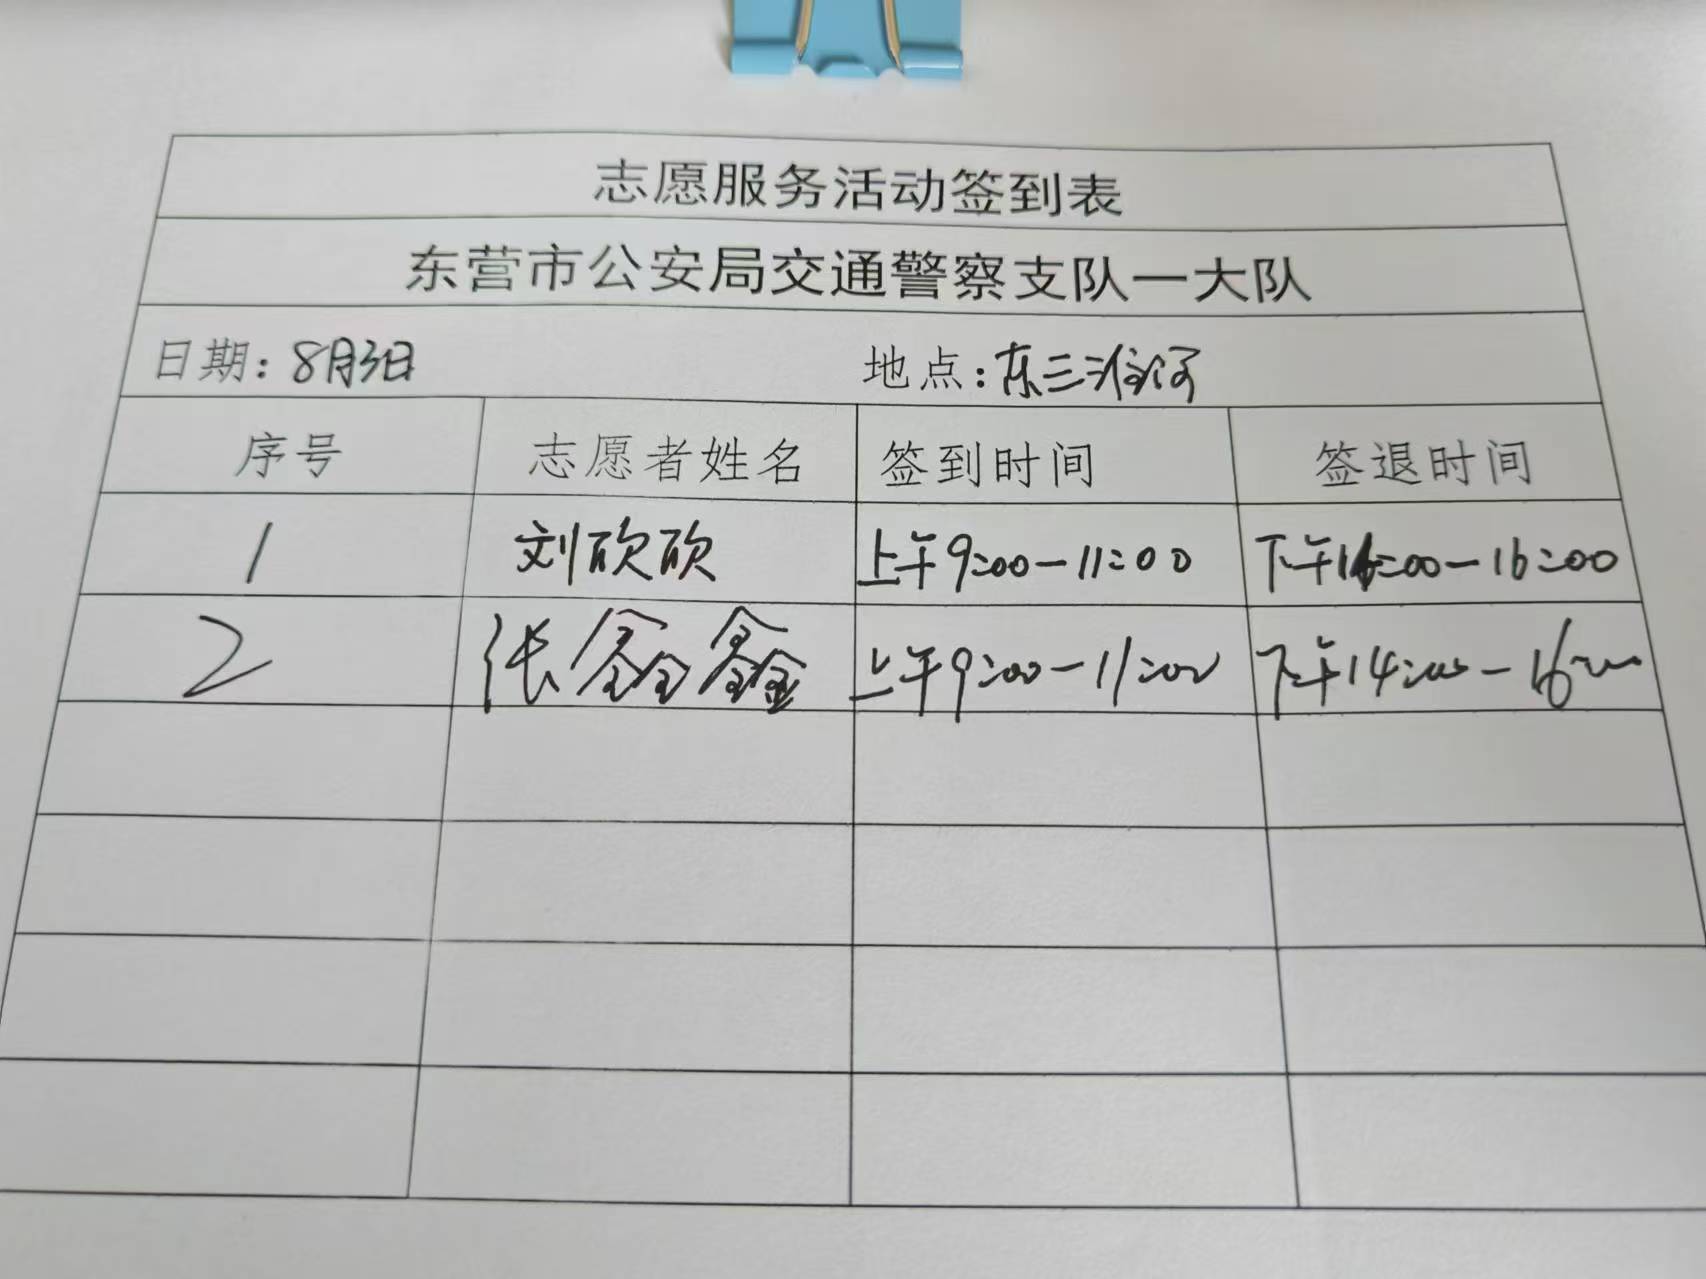 志愿服务活动签到表
东营市公安局交通警察支队一大队
日期：8月3日 地点：东三淮河
序号 志愿者姓名 签到时间 签退时间
1 刘欣欣 上午9:00—11:00 下午14:00—16:00
2 张鑫鑫 上午9:00—11:00 下午14:00—16:00